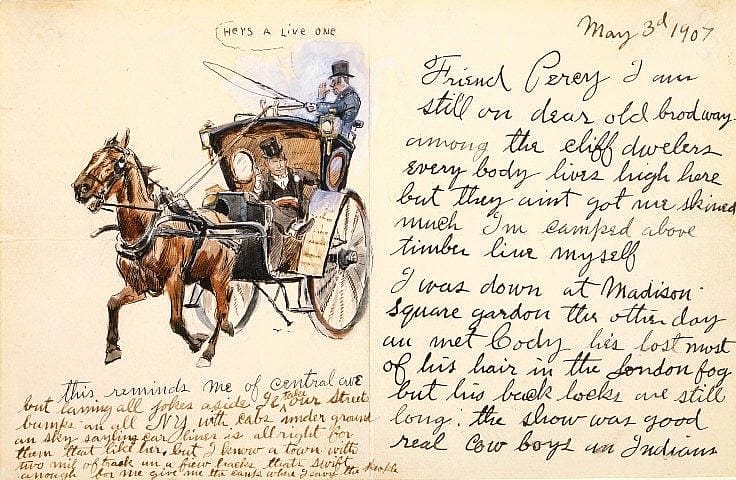 HERS A LIVE ONE
this reminds me of central ave
but laying all jokes aside Id take our street
bumks an all NY with cabs under ground
an sky sayling car lines is all right for
them that like her, but I know a town with
two mil of track an a fiew hacks thats swift
anough for me give me the camp where I savy the people
May 3d 1907
Friend Percy I am
still on dear old brodway
among the cliff dwelers
every body lives high here
but they aint got me skined
much I'm camped above
timber line myself
I was down at Madison
Square gardon the other day
an met Cody hes lost most
of his hair in the London fog
but his back locks are still
long. the show was good
real cow boys an Indians